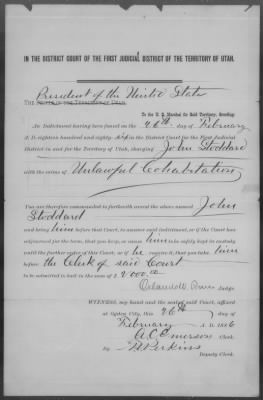 IN THE DISTRICT COURT OF THE FIRST JUDICIAL DISTRICT OF THE TERRITORY OF UTAH.
President of the United States
THE PEOPLE OF THE TERRITORY OF UTAH,
To the U. S. Marshal for Said Territory, Greeting:
An Indictment having been found on the 26th day of February
A. D. eighteen hundred and eighty-six in the District Court for the First Judicial
District in and for the Territory of Utah, charging John Stoddard
with the crime of Unlawful Cohabitation
You are therefore commanded to forthwith arrest the above named John
Stoddard
and bring him before that Court, to answer said indictment, or if the Court has
adjourned for the term, that you keep, or cause him to be safely kept in custody
until the further order of this Court; or if he require it, that you take him
before the Clerk of said Court
to be admitted to bail in the sum of $2000.00
Judge.
WITNESS, my hand and the seal of said Court, affixed
at Ogden City, this 26th day of
February A. D. 1886
A. C. Emerson Clerk.
By Perkins
Deputy Clerk.